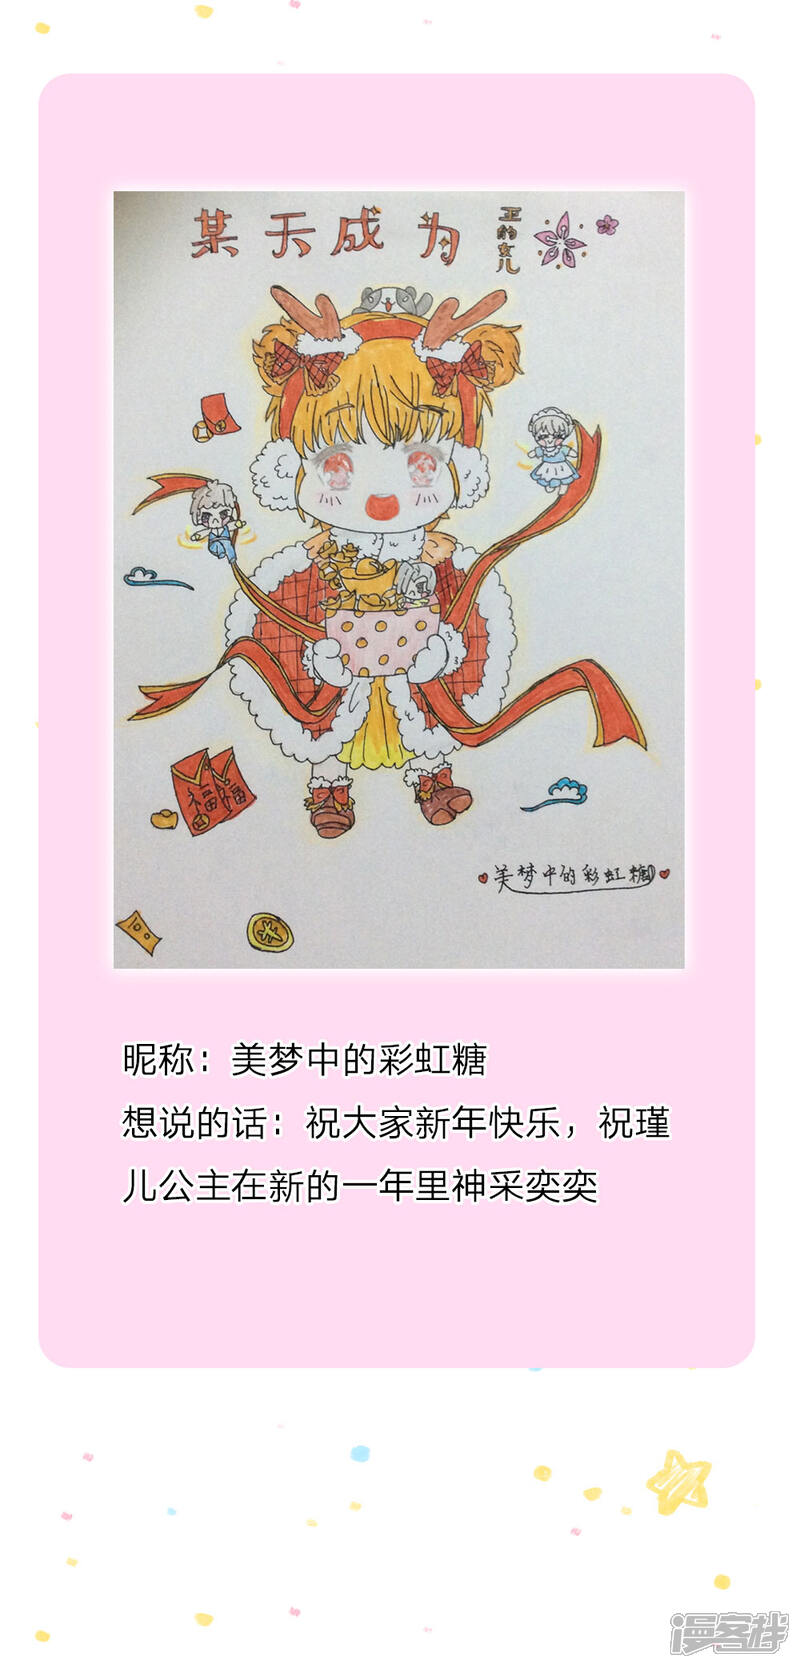 某天成为
王的女儿
福福
美梦中的彩虹糖
昵称：美梦中的彩虹糖
想说的话：祝大家新年快乐，祝瑾
儿公主在新的一年里神采奕奕
漫客栈